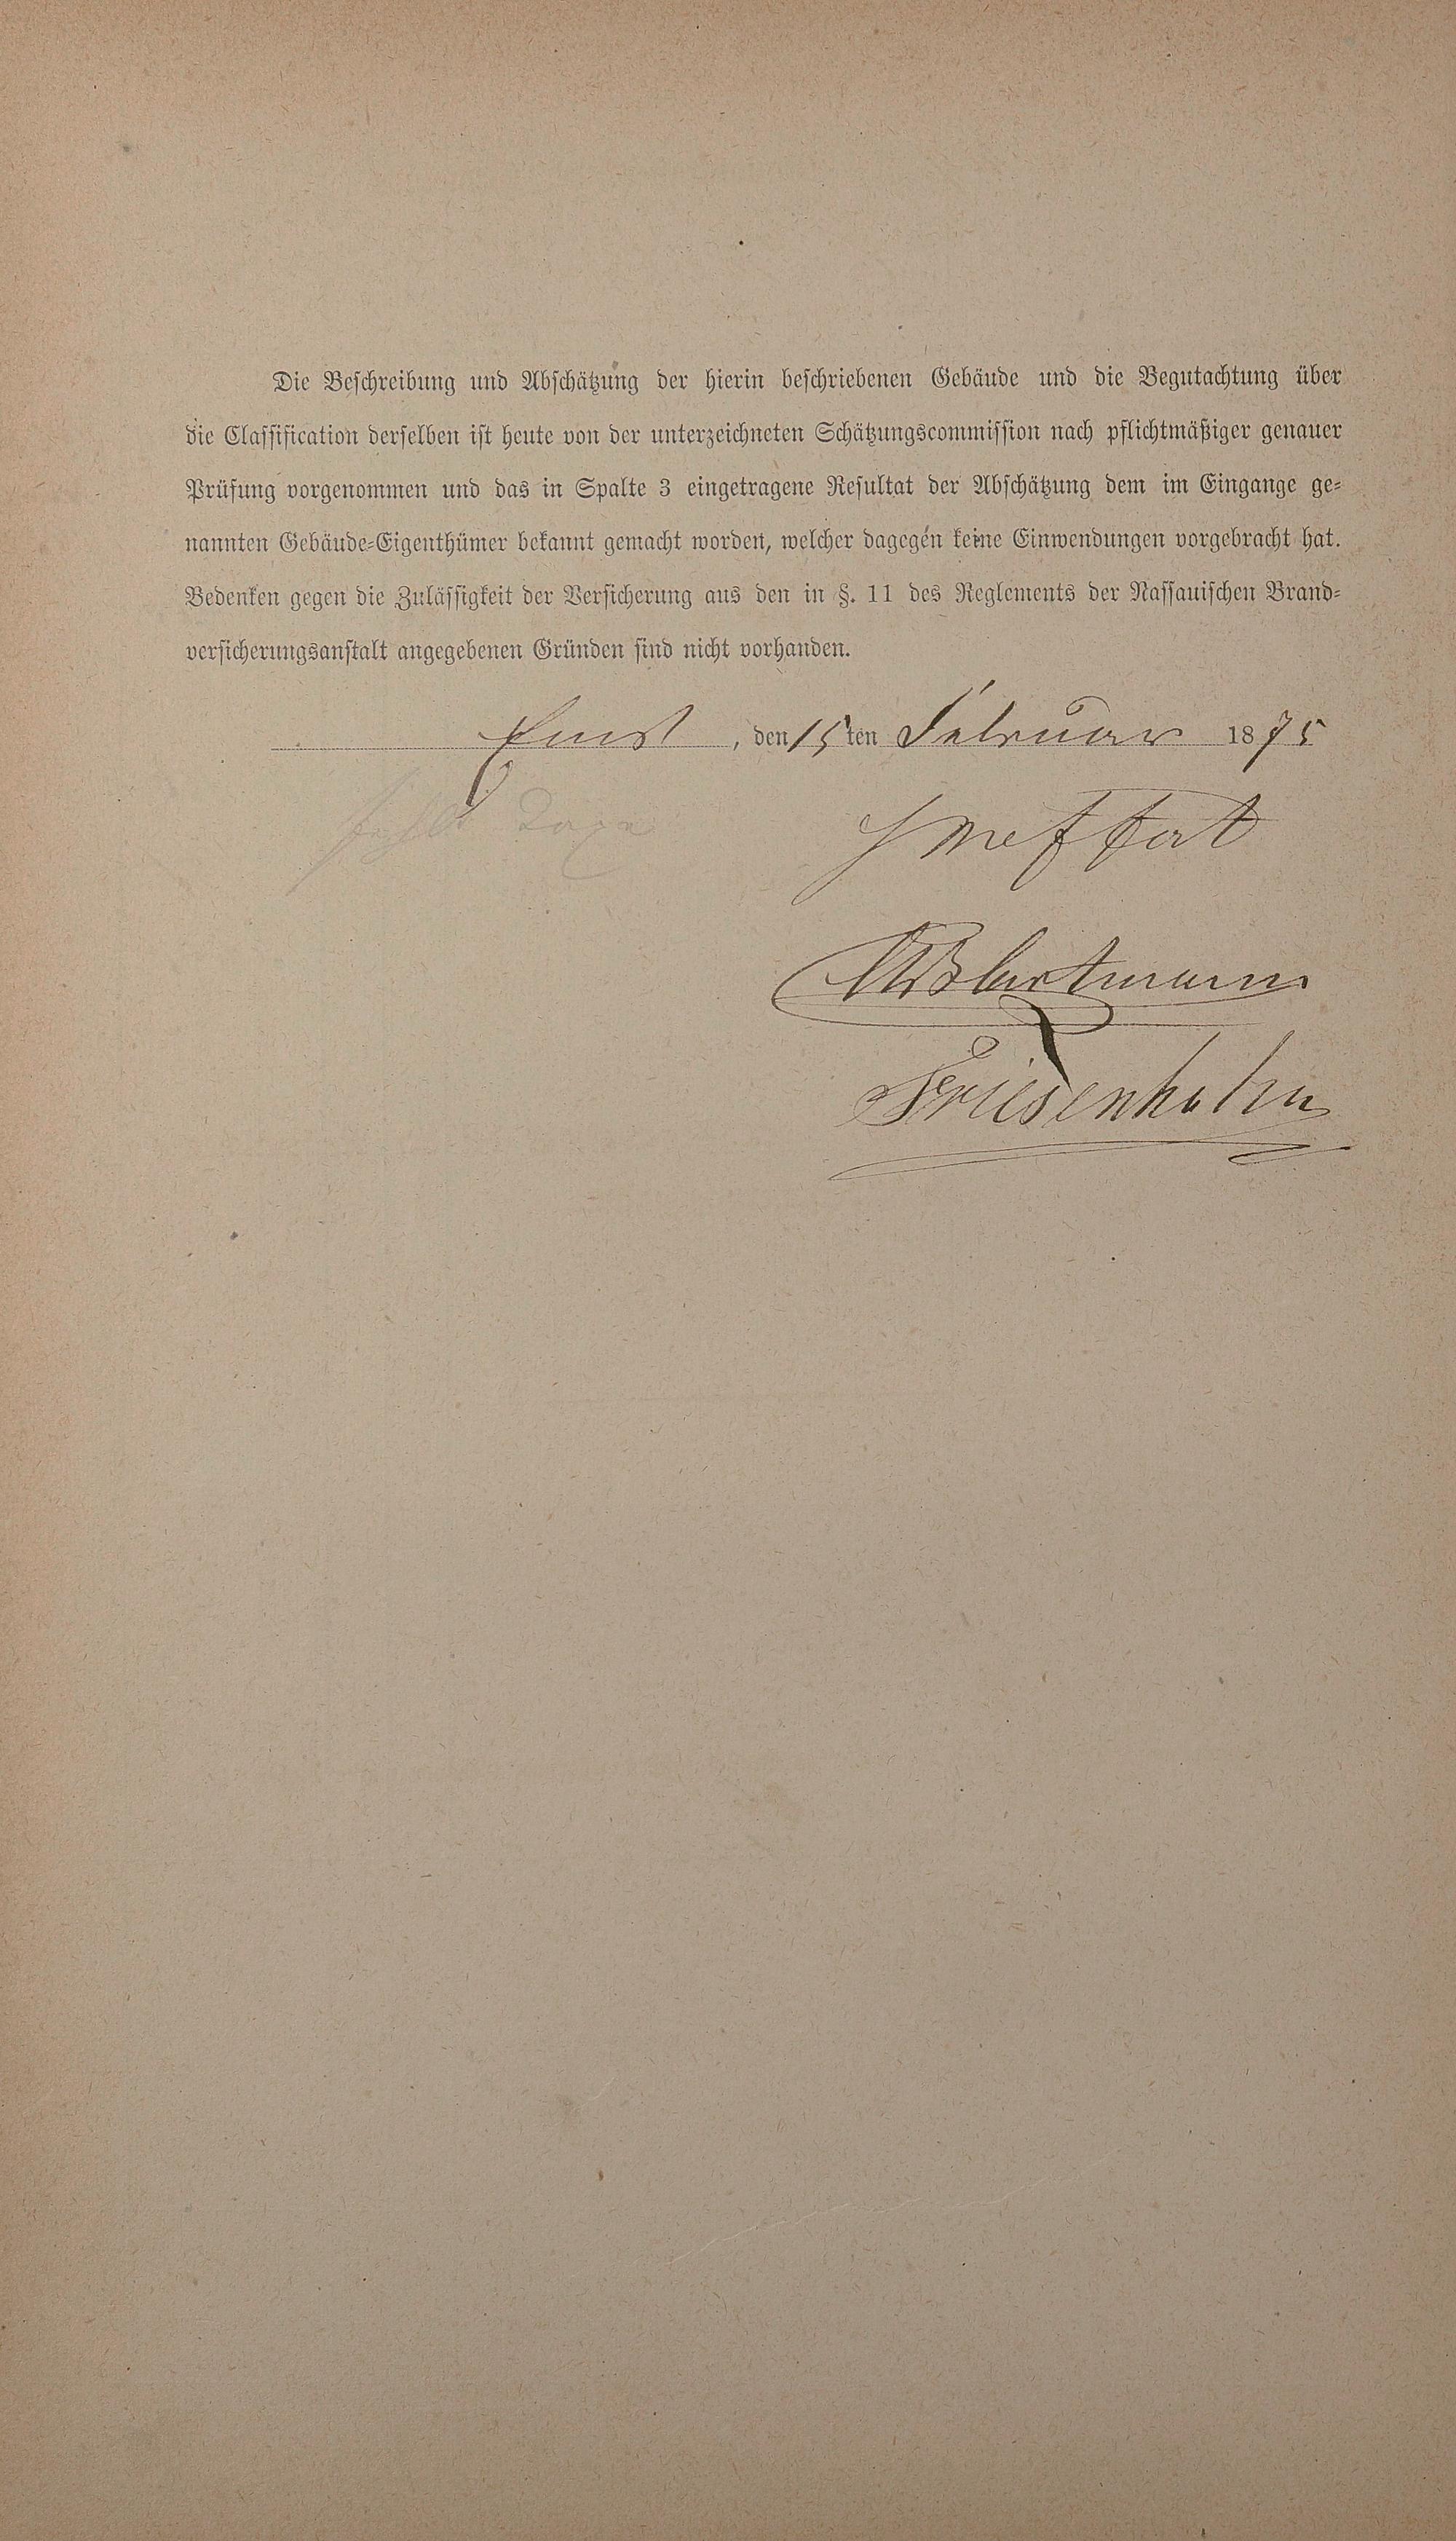 Die Beschreibung und Abschätzung der hierin beschriebenen Gebäude und die Begutachtung über
die Classification derselben ist heute von der unterzeichneten Schätzungscommission nach pflichtmäßiger genauer
Prüfung vorgenommen und das in Spalte 3 eingetragene Resultat der Abschätzung dem im Eingange ge-
nannten Gebäude-Eigenthümer bekannt gemacht worden, welcher dagegen keine Einwendungen vorgebracht hat.
Bedenken gegen die Zulässigkeit der Versicherung aus den in §. 11 des Reglements der Nassauischen Brand-
versicherungsanstalt angegebenen Gründen sind nicht vorhanden.
, den 15ten Februar 1875
Meffert
Friesenhahn